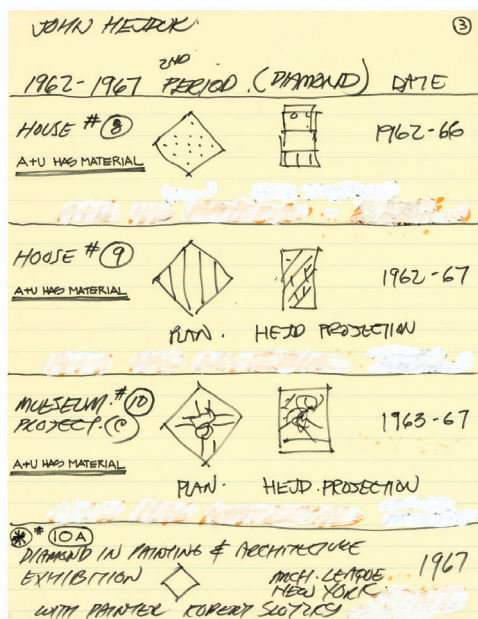 JOHN HEJDUK. ③
1962-1967 2ND PERIOD. (DIAMOND) DATE
HOUSE # ⑧ 1962-66
A+U HAS MATERIAL
HOUSE # ⑨ 1962-67
A+U HAS MATERIAL
PLAN. HEJD PROJECTION
MUSEUM. # ⑩
PROJECT. (C) 1963-67
A+U HAS MATERIAL
PLAN. HEJD. PROJECTION
# 10A
DIAMOND IN PAINTING & ARCHITECTURE 1967
EXHIBITION ARCH. LEAGUE
NEW YORK.
WITH PAINTER ROBERT SLUTZKY